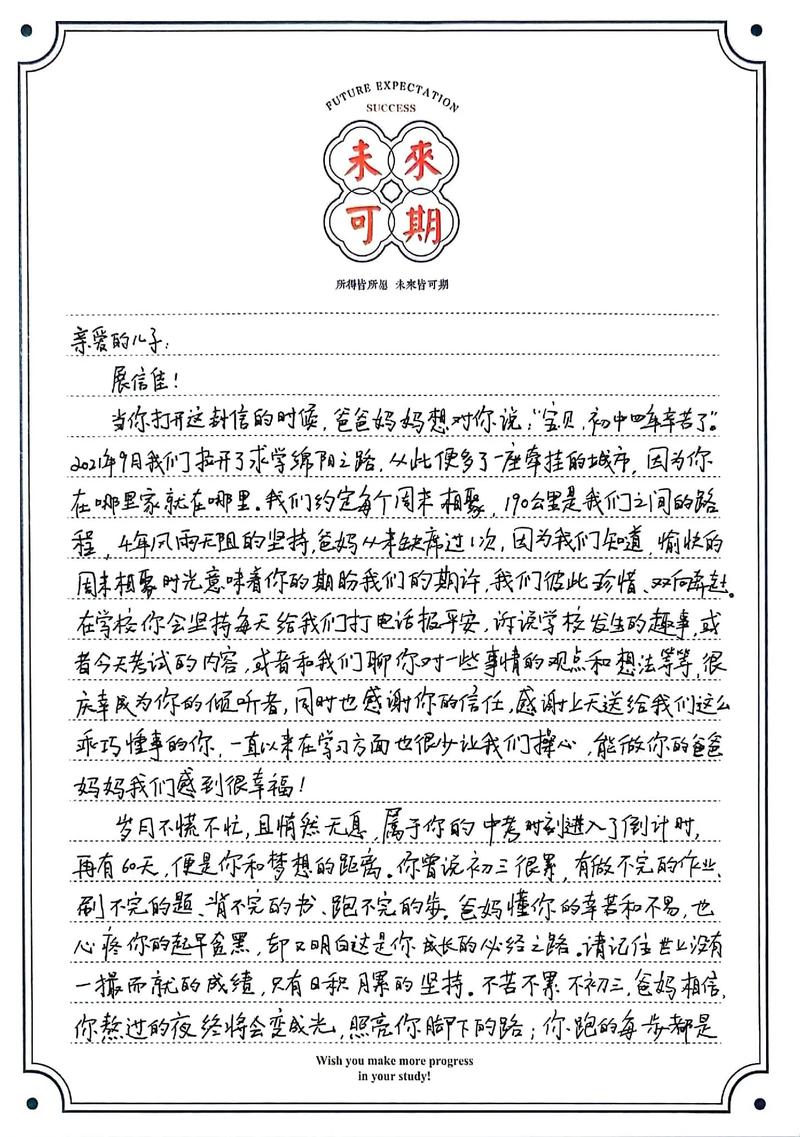 FUTURE EXPECTATION
SUCCESS
未來
可期
所得皆所愿 未来皆可期
亲爱的儿子:
展信佳!
当你打开这封信的时候,爸爸妈妈想对你说:“宝贝,初中四年辛苦了”。
2021年9月我们拉开了求学绵阳之路,从此便多了一座牵挂的城市,因为你
在哪里家就在哪里。我们约定每个周末相聚,190公里是我们之间的路
程,4年风雨无阻的坚持,爸妈从未缺席过1次,因为我们知道,愉快的
周末相聚时光意味着你的期盼我们的期许,我们彼此珍惜、双向奔赴。
在学校你会坚持每天给我们打电话报平安,诉说学校发生的趣事,或
者今天考试的内容,或者和我们聊你对一些事情的观点和想法等等,很
庆幸成为你的倾听者,同时也感谢你的信任,感谢上天送给我们这么
乖巧懂事的你,一直以来在学习方面也很少让我们操心,能做你的爸爸
妈妈我们感到很幸福!
岁月不慌不忙,且悄然无息,属于你的中考时刻进入了倒计时,
再有60天,便是你和梦想的距离。你曾说初三很累,有做不完的作业、
刷不完的题、背不完的书、跑不完的步。爸妈懂你的辛苦和不易,也
心疼你的起早贪黑,却又明白这是你成长的必经之路。请记住世上没有
一撮而就的成绩,只有日积月累的坚持。不苦不累不初三,爸妈相信,
你熬过的夜终将会变成光,照亮你脚下的路;你跑的每步都是
Wish you make more progress
in your study!